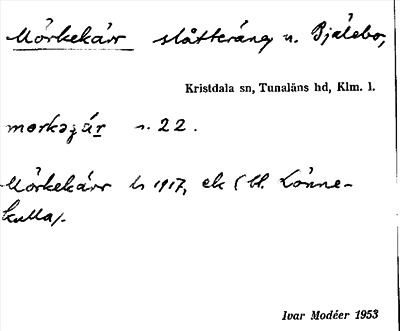 Mörkekärr slåtteräng n. Bjälebo,
Kristdala sn, Tunaläns hd, Klm. l.
s. 22.
Mörkekärr Ls 1917, ek (bl. Lönne-
kulla).
Ivar Modéer 1953